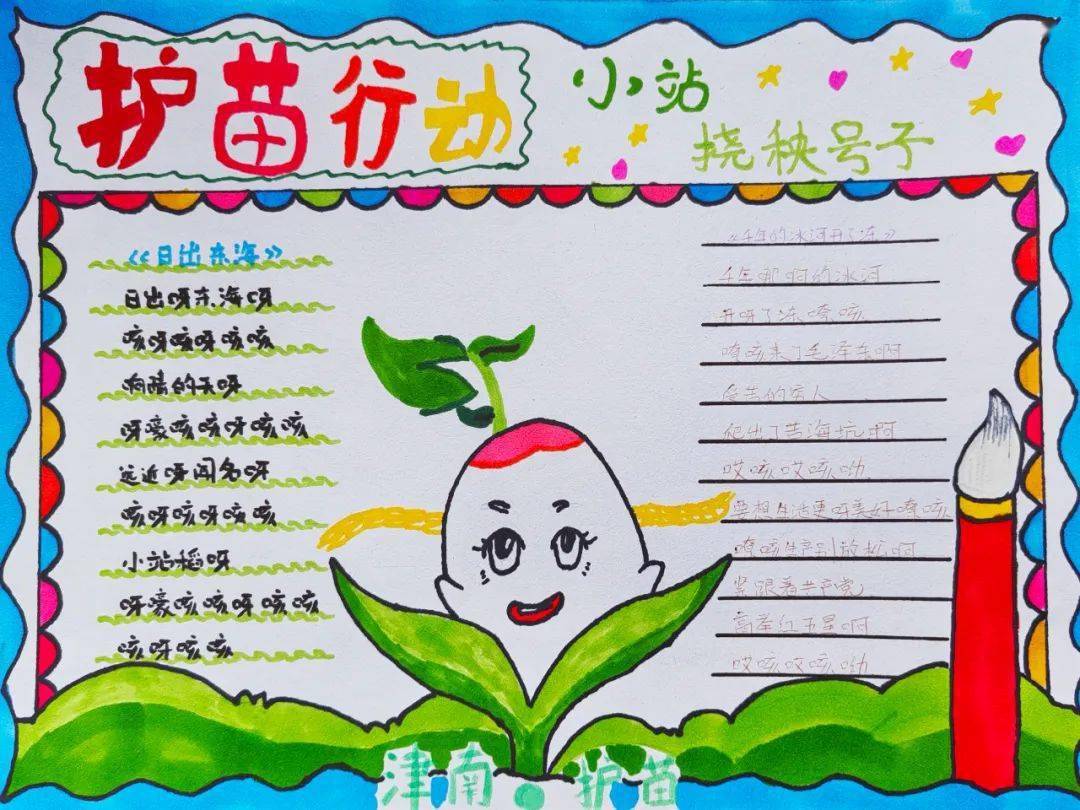 护苗行动
小站
挠秧号子
《日出东海》
日出呀东海呀
咳呀咳呀咳咳
响晴的天呀
呀豪咳咳呀咳咳
远近呀闻名呀
咳呀咳呀咳咳
小站稻呀
呀豪咳咳呀咳咳
咳呀咳咳
《千年的冰河开了冻》
千年那啊的冰河
开呀了冻嘹咳
嘹咳来了毛泽东啊
受苦的穷人
爬出了苦海坑啊
哎咳哎咳呦
要想生活更呀美好嘹咳
嘹咳生产别放松啊
紧跟着共产党
高举红五星啊
哎咳哎咳呦
津南·护苗